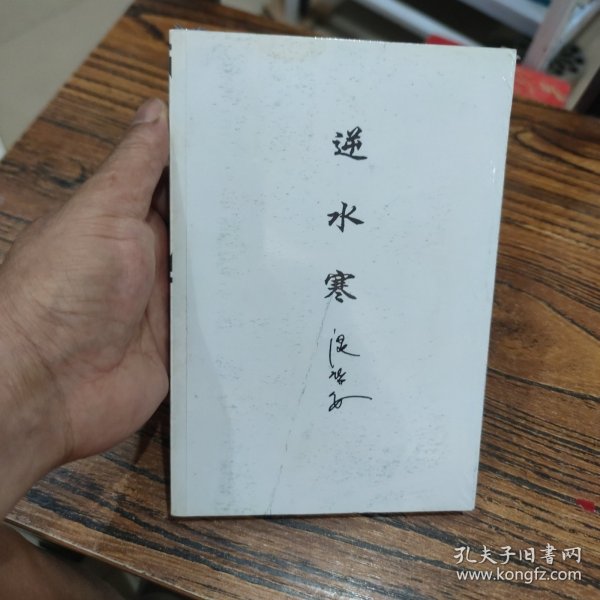 逆水寒
温瑞安
孔夫子旧書网
www.kongfz.com